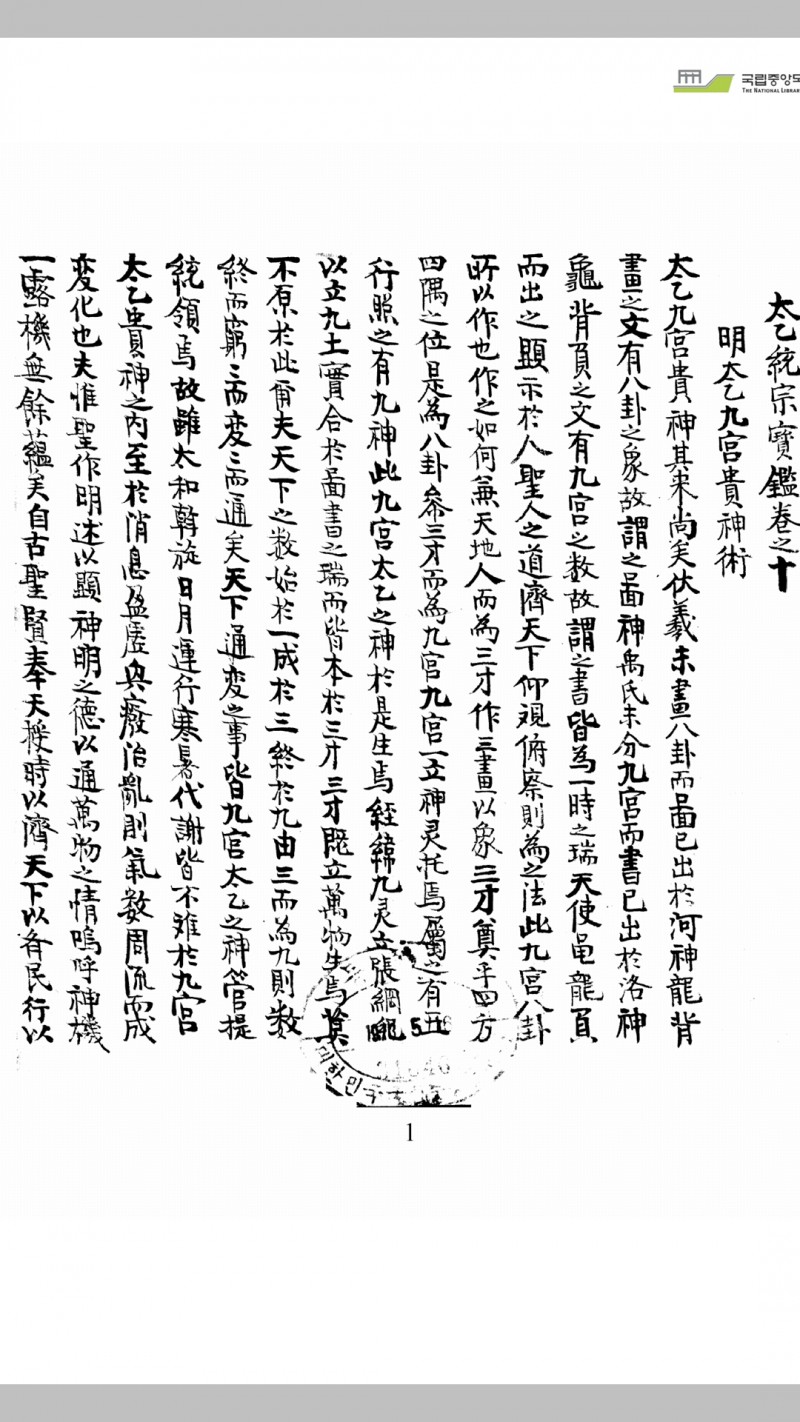 국립중앙도
THE NATIONAL LIBRAR
太乙統宗寶鑑卷之十
明太乙九宮貴神術
太乙九宮貴神其来尚矣伏羲未畫八卦而啚已出於河神龍背
畫之文有八卦之象故謂之啚神禹氏未分九宮而書已出於洛神
龜背負之文有九宮之数故謂之書皆為一時之瑞天使黽龍負
而出之顕示於人聖人之道齊天下仰观俯察則為之法此九宮八卦
所以作也作之如何兼天地人而為三才作三畫以象三才奠乎四方
四隅之位是為八卦叅三才而為九宮九宮一立神灵托焉屬之有五
行照之有九神此九宮太乙之神於是生焉経緯九灵立張綱
以立九土實合於啚書之瑞而皆本於三才三才既立萬物生焉莫
不原於此甭夫天下之数始於一成於三終於九由三而為九則数
終而窮ミ而変ミ而通矣天下通变之事皆九宮太乙之神管提
統領焉故雖太和斡旋日月運行寒暑代謝皆不难於九宮
太乙貴神之内至於消息盈虚與癈治亂則氣数周流而成
変化也夫惟聖作明述以顕神明之德以通萬物之情嗚呼神機
一露機無餘蘊矣自古聖賢奉天授時以濟天下以各民行以
대한민국
1